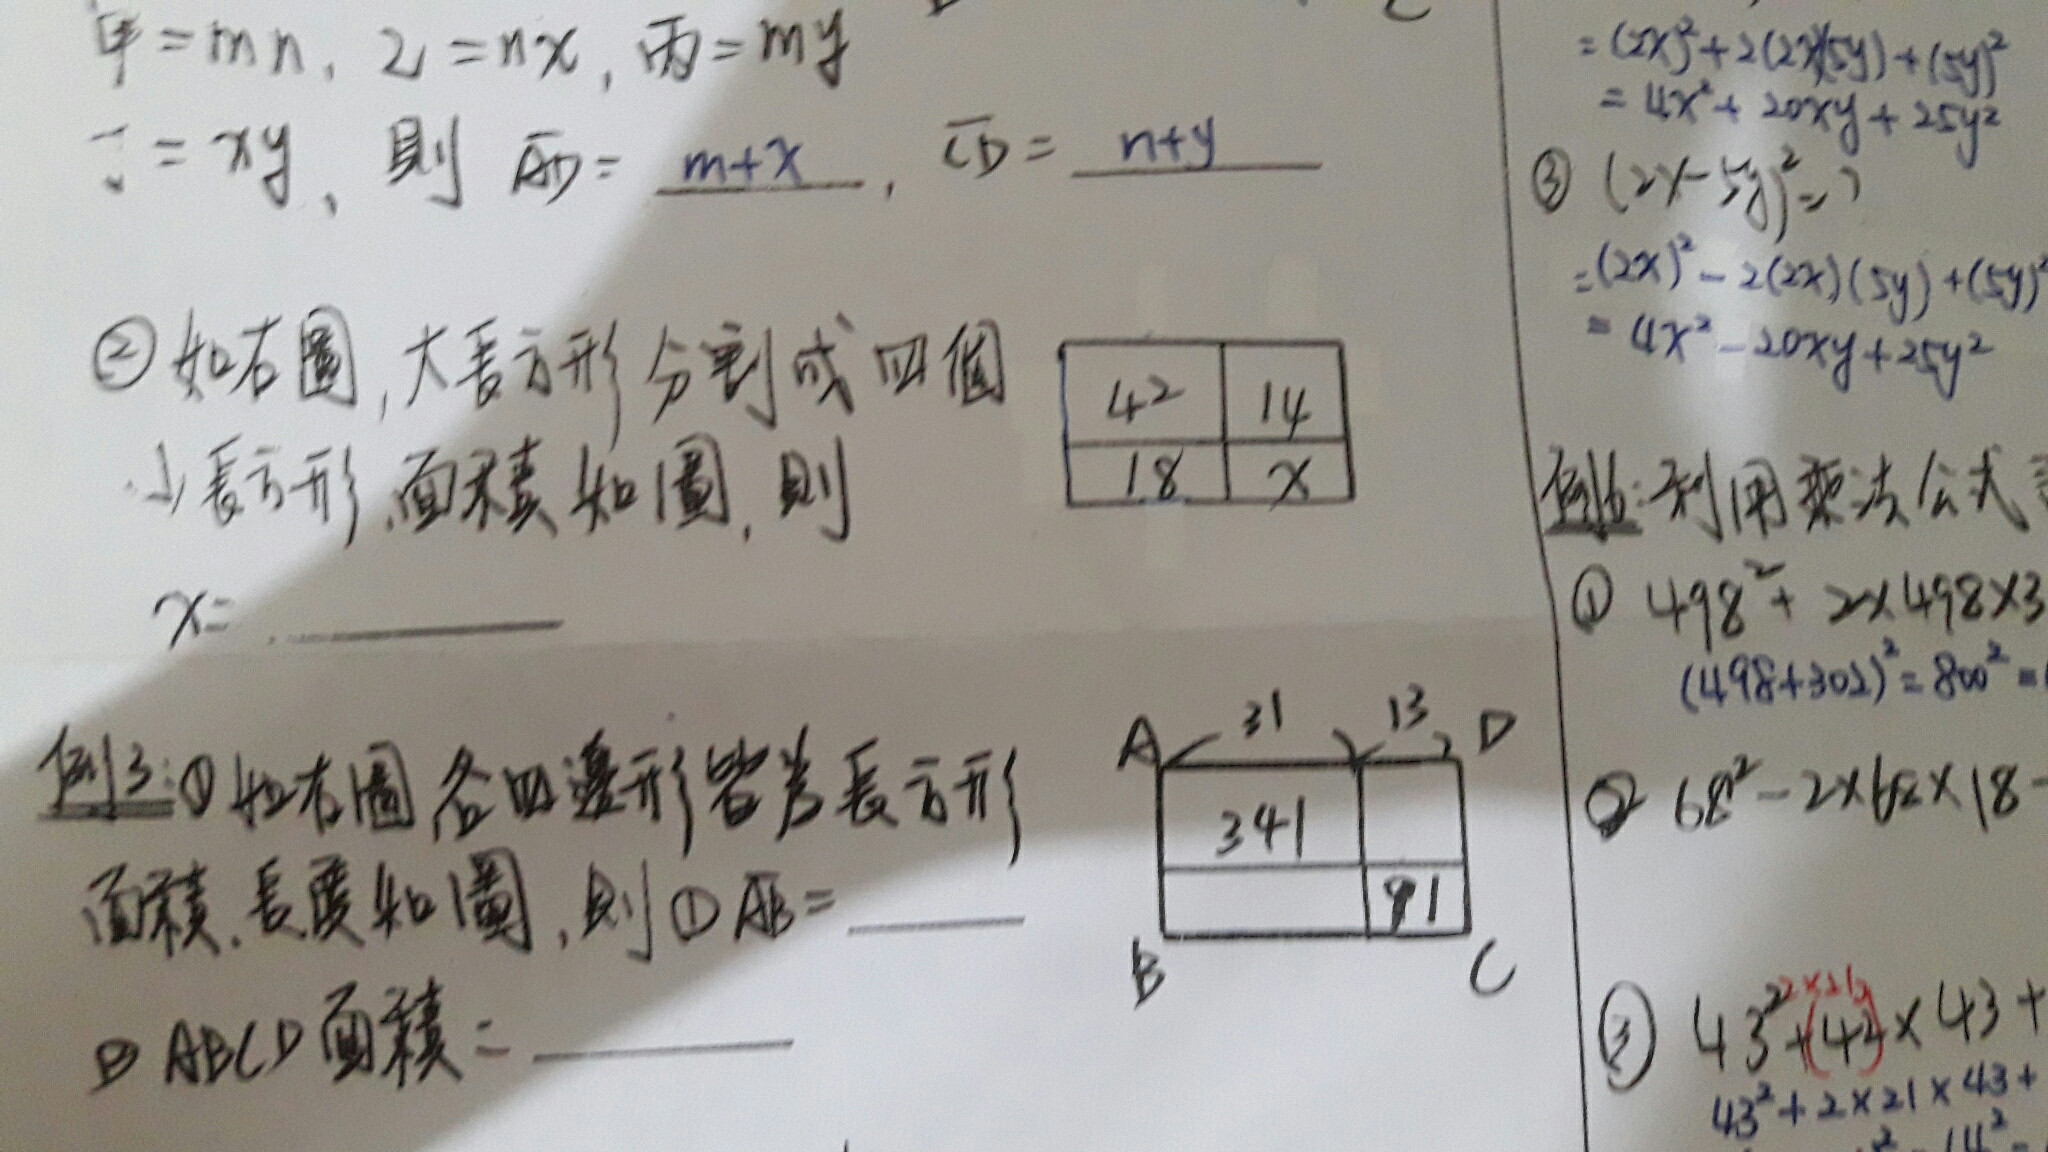 甲=mn, 乙=nx, 丙=my
丁=xy, 則 AD= m+x, CD= n+y
② 如右圖, 大長方形分割成四個
小長方形, 面積如圖, 則
x=
42 14
18 x
例3: ① 如右圖各四邊形皆為長方形
面積、長度如圖, 則① AB=
② ABCD面積=
A 31 13 D
341
91
B C
=(2x)²+2(2x)(5y)+(5y)²
=4x²+20xy+25y²
③ (2x-5y)²=?
=(2x)²-2(2x)(5y)+(5y)²
=4x²-20xy+25y²
例6: 利用乘法公式
① 498²+2×498×3
(498+302)²=800²=
② 68²-2×68×18-
2×21
③ 43²+(42)×43+
43²+2×21×43+